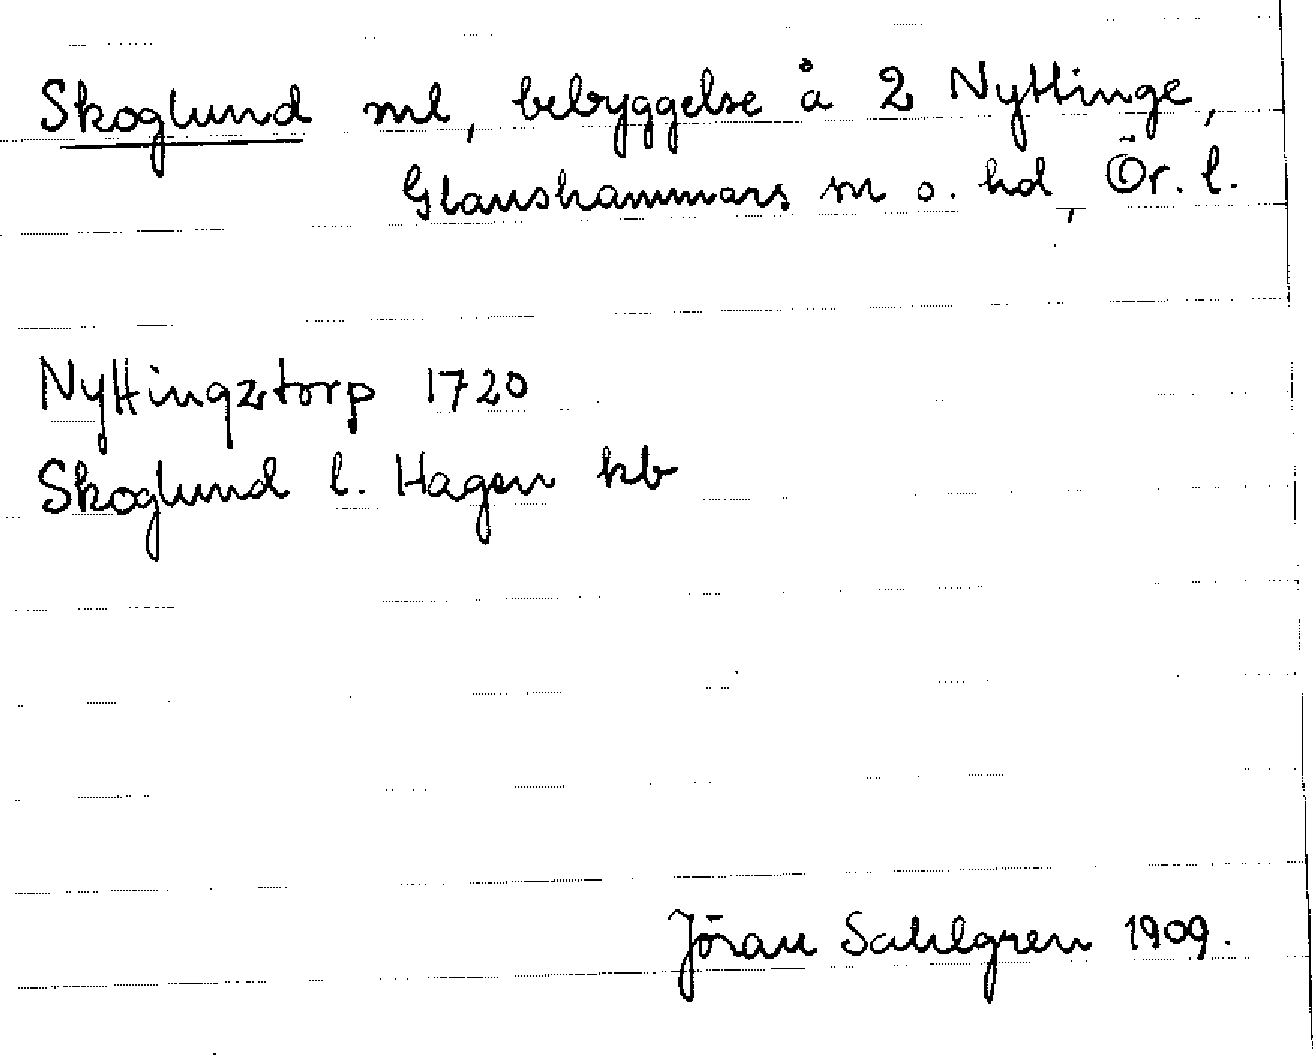 Skoglund ml, bebyggelse å 2 Nyttinge,
Glanshammars sn o. hd, Ör. l.
Nyttingztorp 1720
Skoglund l. Hagen kb
Jöran Sahlgren 1909.